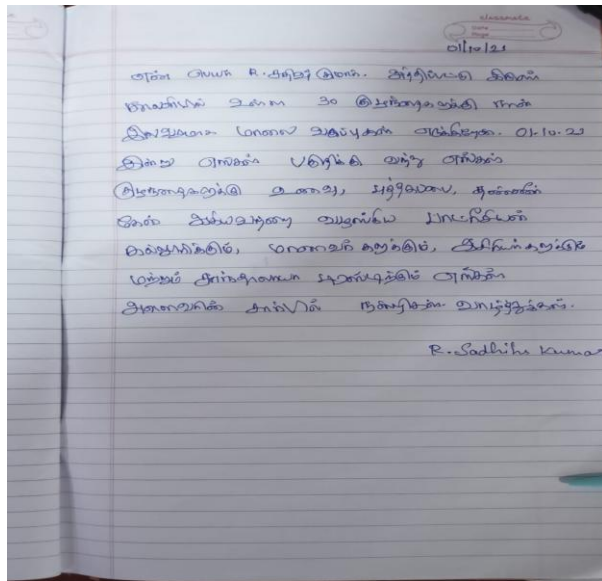 classmate
Date
Page
01/10/21
என் பெயர் R. சதிஷ் குமார். இலங்கை
காலனியில் உள்ள 30 குழந்தைகளுக்கு நான்
இலவசமாக மாலை வகுப்புகள் எடுக்கிறேன். 01.10.21
இன்று எங்கள் பகுதிக்கு வந்து எங்கள்
குழந்தைகளுக்கு உணவு, புத்தகபை, தண்ணீர்
கேன் ஆகியவற்றை வழங்கிய
கல்லூரிக்கும், மாணவர்களுக்கும், ஆசிரியர்களுக்கும்
மற்றும் எங்கள்
அனைவரின் சார்பில் நன்றிகள் வாழ்த்துக்கள்.
R. Sadhihs Kumar